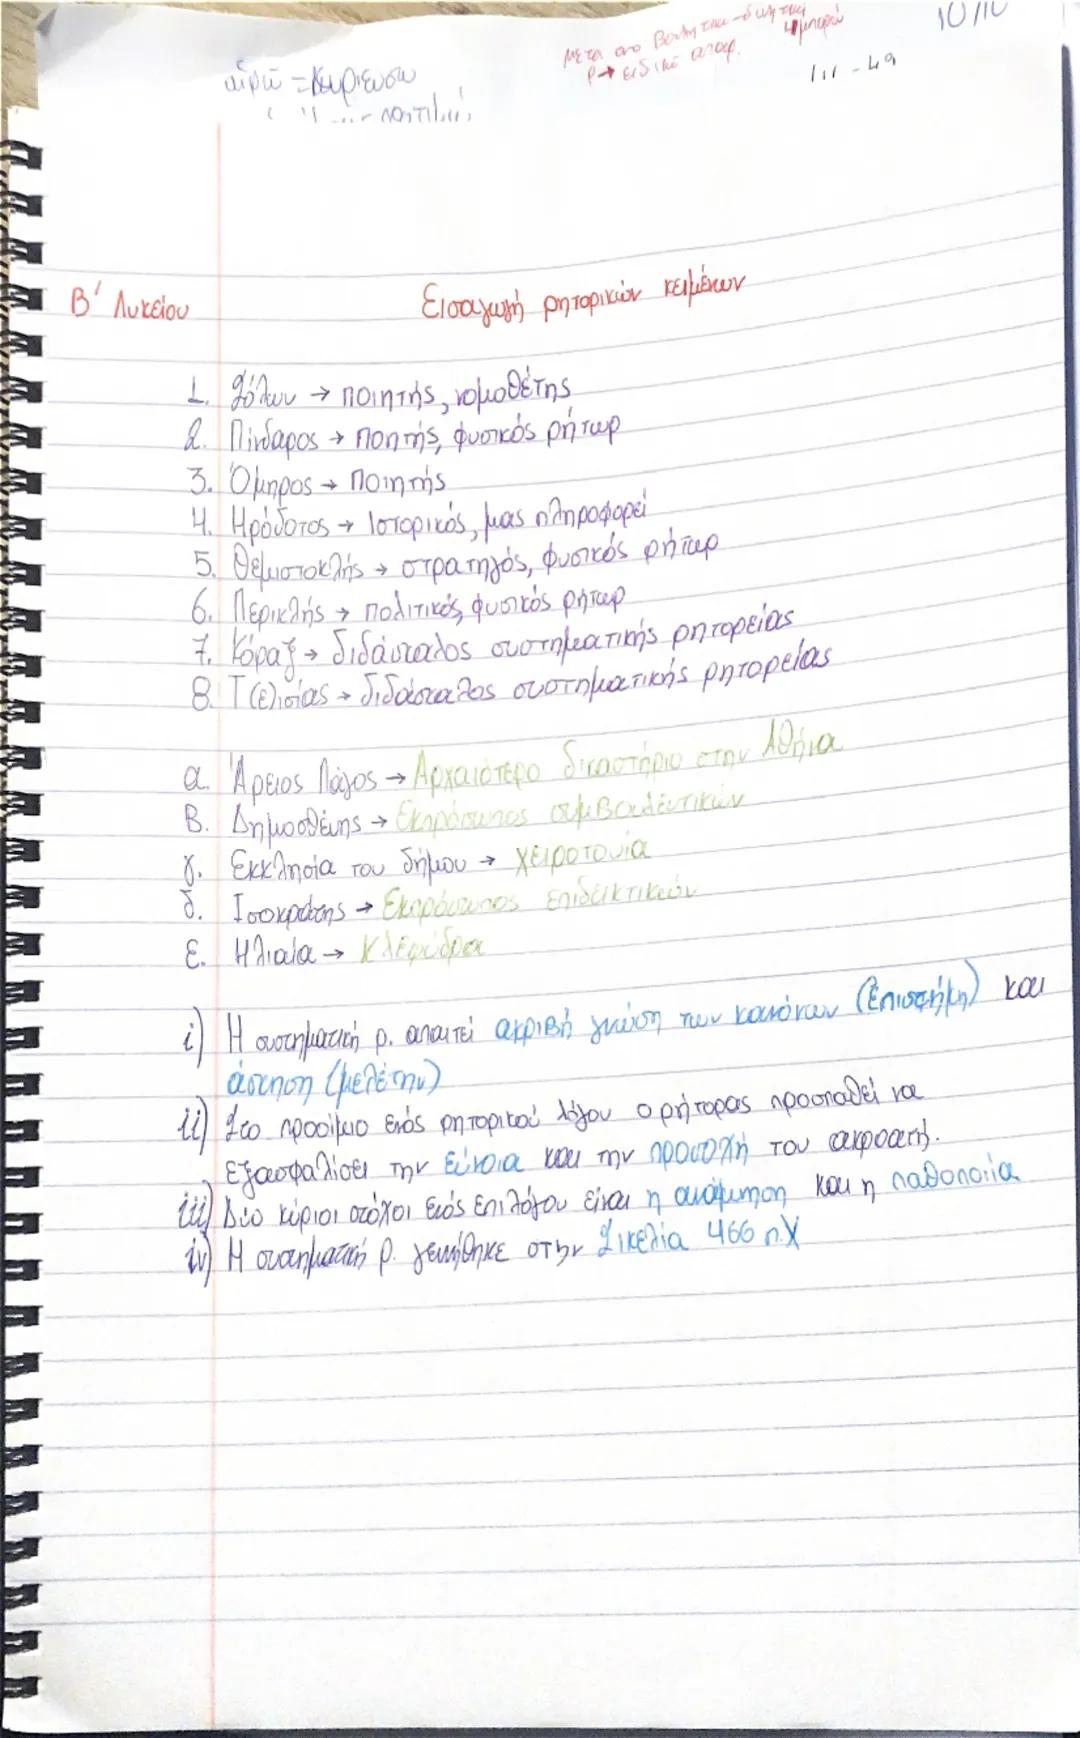 10/10
Μετα απο
ρ → ειδικό απαρ.
αἱρῶ = κυριευσω
Β' Λυκείου
Εισαγωγή ρητορικών κειμένων
1. Σόλων → ποιητής, νομοθέτης
2. Πίνδαρος → ποητής, φυσικός ρήτωρ
3. Όμηρος → Ποιητής
4. Ηρόδοτος → Ιστορικός, μας πληροφορεί
5. Θεμιστοκλής → στρατηγός, φυσικός ρήτωρ
6. Περικλής → πολιτικός, φυσικός ρήτωρ
7. Κόραξ → διδάσκαλος συστηματικής ρητορείας
8. Τ(ε)ισίας → διδάσκαλος συστηματικής ρητορείας
α. Άρειος Πάγος → Αρχαιότερο δικαστήριο στην Αθήνα
Β. Δημοσθένης → Εκπρόσωπος συμβουλευτικών
γ. Εκκλησία του δήμου → χειροτονία
δ. Ισοκράτης → Εκπρόσωπος επιδεικτικών
ε. Ηλιαία → Κλεψύδρα
i) Η συστηματική ρ. απαιτεί ακριβή γνώση των κανόνων (Επιστήμη) και
άσκηση (μελέτην)
ii) Στο προοίμιο ενός ρητορικού λόγου ο ρήτορας προσπαθεί να
εξασφαλίσει την εύνοια και την προσοχή του ακροατή.
iii) Δύο κύριοι στόχοι ενός επιλόγου είναι η ανάμνηση και η παθοποιία
iv) Η συστηματική ρ. γεννήθηκε στην Σικελία 466 π.Χ